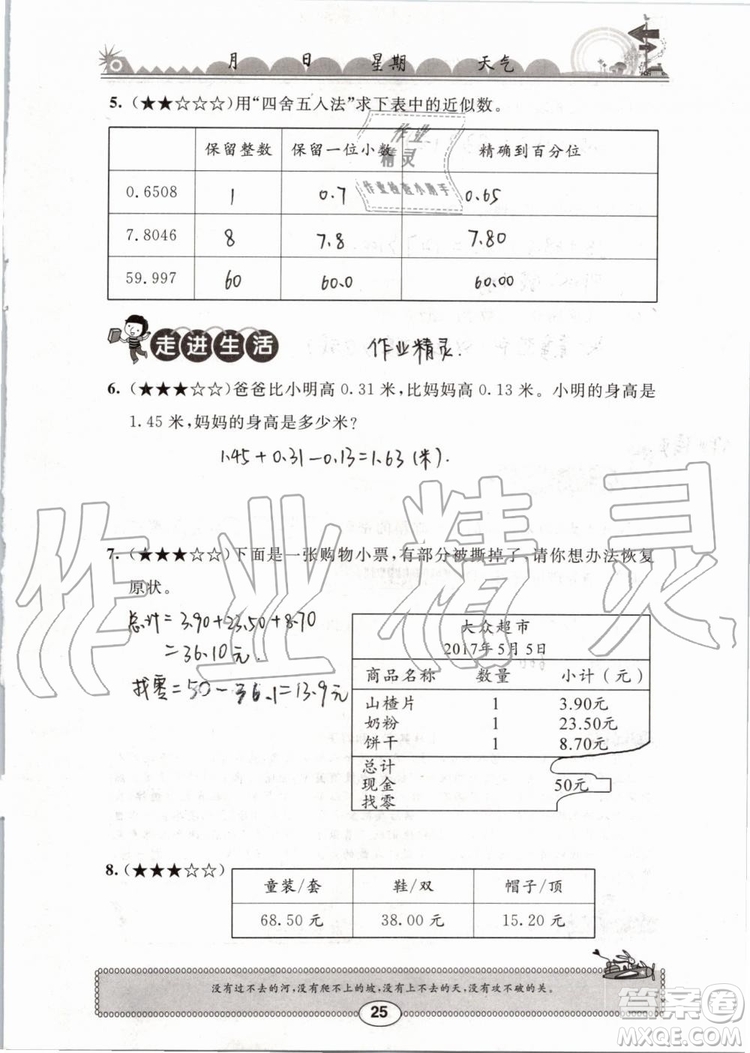 月 日 星期 天气
5. (★★☆☆☆)用“四舍五入法”求下表中的近似数。
保留整数 保留一位小数 精确到百分位
0.6508 1 0.7 0.65
7.8046 8 7.8 7.80
59.997 60 60.0 60.00
作业
精灵
作业检查小助手
走进生活
作业精灵.
6. (★★★☆☆)爸爸比小明高 0.31 米,比妈妈高 0.13 米。小明的身高是
1.45 米,妈妈的身高是多少米?
1.45+0.31-0.13=1.63(米).
7. (★★★☆☆)下面是一张购物小票,有部分被撕掉了,请你想办法恢复
原状。
总计=3.90+23.50+8.70
=36.10元.
找零=50-36.1=13.9元
大众超市
2017年5月5日
商品名称 数量 小计(元)
山楂片 1 3.90元
奶粉 1 23.50元
饼干 1 8.70元
总计
现金 50元
找零
作业精灵
8. (★★★☆☆)
童装/套 鞋/双 帽子/顶
68.50 元 38.00 元 15.20 元
没有过不去的河,没有爬不上的坡,没有上不去的天,没有攻不破的关。
25
答案圈
MXQE.COM